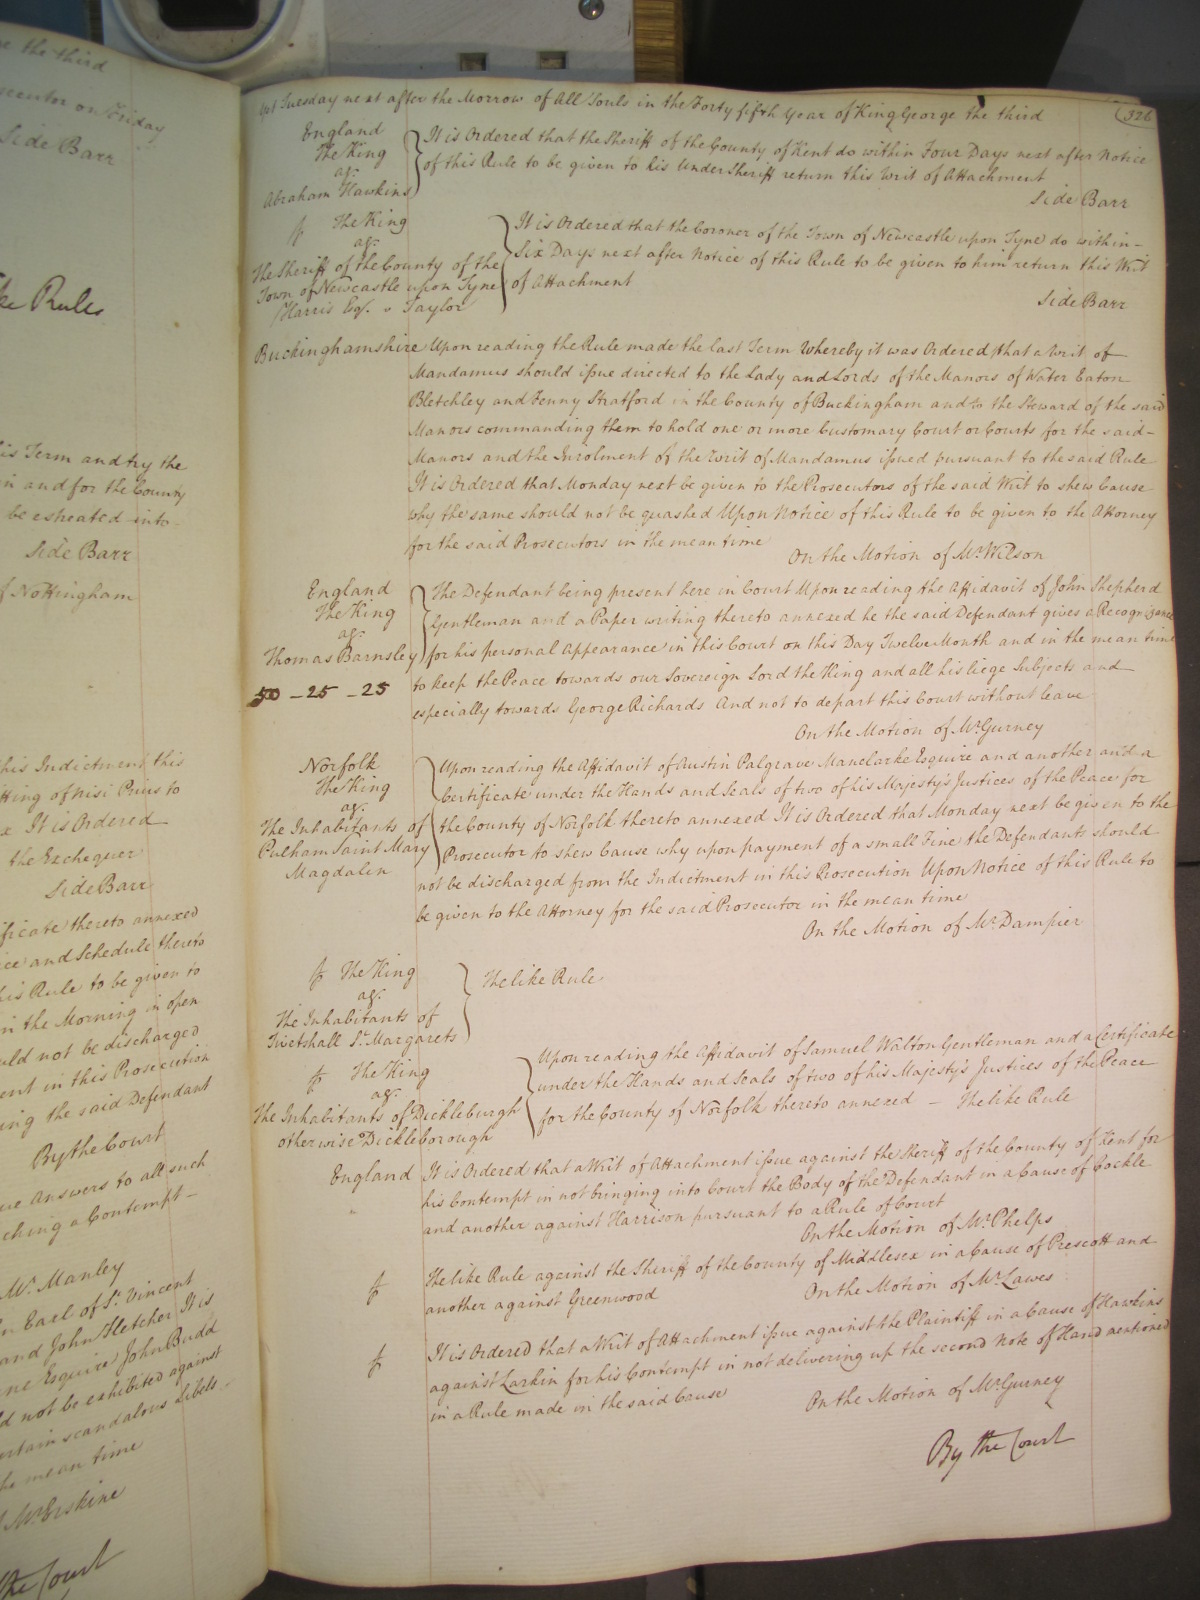 the third
on Friday
Side Barr
like Rule
his Term and try the
in and for the County
be estreated into
Side Barr
of Nottingham
his Indictment this
Sitting of Nisi Prius to
It is Ordered
the Exchequer
Side Barr
Certificate thereto annexed
and Schedule thereto
his Rule to be given to
in the Morning in open
should not be discharged
in this Prosecution
the said Defendant
By the Court
Answers to all such
touching a Contempt
Mr. Manley
Earl of St. Vincent
and John Fletcher It is
Esquire John Budd
not be exhibited against
certain scandalous Libels
the mean time
Mr. Erskine
the Court
Tuesday next after the Morrow of All Souls in the Forty fifth Year of King George the third
326
England
The King
agt.
Abraham Hawkins
It is Ordered that the Sheriff of the County of Kent do within Four Days next after Notice
of this Rule to be given to his UnderSheriff return this Writ of Attachment
Side Barr
The King
agt.
The Sheriff of the County of the
Town of Newcastle upon Tyne
Harris Esq. v Taylor
It is Ordered that the Coroner of the Town of Newcastle upon Tyne do within
Six Days next after Notice of this Rule to be given to him return this Writ
of Attachment
Side Barr
Buckinghamshire Upon reading the Rule made the last Term Whereby it was Ordered that a Writ of
Mandamus should issue directed to the Lady and Lords of the Manors of Water Eaton
Bletchley and Fenny Stratford in the County of Buckingham and to the Steward of the said
Manors commanding them to hold one or more Customary Court or Courts for the said
Manors and the Inrolment of the Writ of Mandamus issued pursuant to the said Rule
It is Ordered that Monday next be given to the Prosecutors of the said Writ to shew Cause
why the same should not be quashed Upon Notice of this Rule to be given to the Attorney
for the said Prosecutors in the mean time
On the Motion of Mr. Wilson
England
The King
agt.
Thomas Barnsley
50 - 25 - 25
The Defendant being present here in Court Upon reading the Affidavit of John Shepherd
Gentleman and a Paper writing thereto annexed he the said Defendant gives a Recognizance
for his personal Appearance in this Court on this Day Twelve Month and in the mean time
to keep the Peace towards our Sovereign Lord the King and all his liege Subjects and
especially towards George Richards And not to depart this Court without leave
On the Motion of Mr. Gurney
Norfolk
The King
agt.
The Inhabitants of
Pulham Saint Mary
Magdalen
Upon reading the Affidavit of Austin Palgrave Manclarke Esquire and another and a
Certificate under the Hands and Seals of two of his Majesty's Justices of the Peace for
the County of Norfolk thereto annexed It is Ordered that Monday next be given to the
Prosecutor to shew Cause why upon payment of a small Fine the Defendants should
not be discharged from the Indictment in this Prosecution Upon Notice of this Rule to
be given to the Attorney for the said Prosecutor in the mean time
On the Motion of Mr. Dampier
The King
agt.
The Inhabitants of
Tivetshall St. Margarets
The like Rule
The King
agt.
The Inhabitants of Dickleburgh
otherwise Dickleborough
Upon reading the Affidavit of Samuel Walton Gentleman and a Certificate
under the Hands and Seals of two of his Majesty's Justices of the Peace
for the County of Norfolk thereto annexed - The like Rule
England It is Ordered that a Writ of Attachment issue against the Sheriff of the County of Kent for
his Contempt in not bringing into Court the Body of the Defendant in a Cause of Cockle
and another against Harrison pursuant to a Rule of Court
On the Motion of Mr. Phelps
The like Rule against the Sheriff of the County of Middlesex in a Cause of Prescott and
another against Greenwood
On the Motion of Mr. Lawes
It is Ordered that a Writ of Attachment issue against the Plaintiff in a Cause of Hawkins
against Larkin for his Contempt in not delivering up the second Note of Hand mentioned
in a Rule made in the said Cause
On the Motion of Mr. Gurney
By the Court